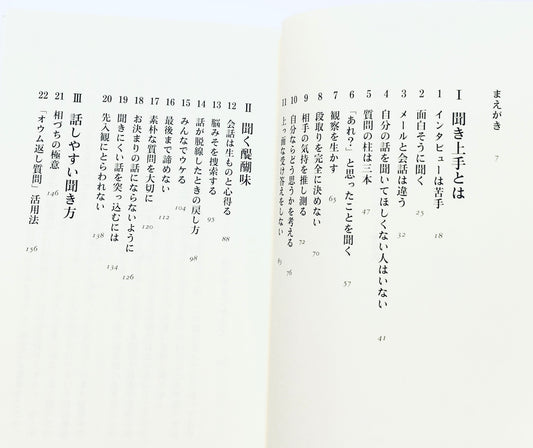 まえがき 7
I 聞き上手とは
1 インタビューは苦手 18
2 面白そうに聞く 25
3 メールと会話は違う 32
4 自分の話を聞いてほしくない人はいない 41
5 質問の柱は三本 47
6 「あれ？」と思ったことを聞く 57
7 観察を生かす 63
8 段取りを完全に決めない 70
9 相手の気持を推し測る 72
10 自分ならどう思うかを考える 76
11 上っ面な受け答えをしない 83
II 聞く醍醐味
12 会話は生ものと心得る 88
13 脳みそを捜索する 95
14 話が脱線したときの戻し方 98
15 みんなでウケる 104
16 最後まで諦めない 112
17 素朴な質問を大切に 120
18 お決まりの話にならないように 126
19 聞きにくい話を突っ込むには 134
20 先入観にとらわれない 138
III 話しやすい聞き方
21 相づちの極意 146
22 「オウム返し質問」活用法 156